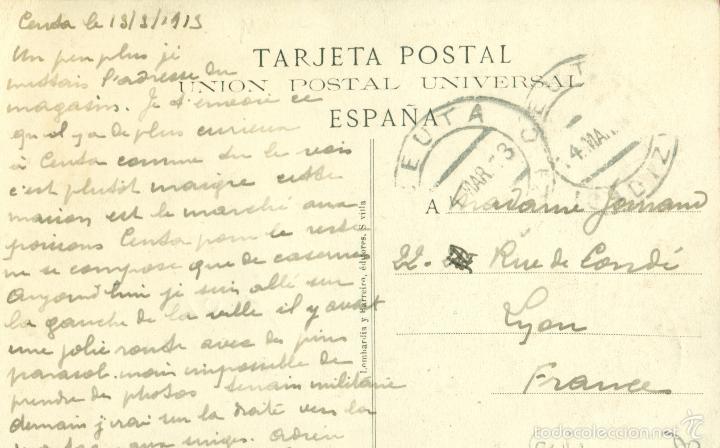 Ceuta le 13/3/1913
Un peu plus je
mettais l'adresse du
magasin. Je t'envoie ce
qu'il y a de plus curieux
à Ceuta comme tu le vois
c'est plutôt maigre cette
maison est le marché aux
poissons Ceuta pour le reste
ne se compose que de casernes
Aujourd'hui je suis allé sur
la gauche de la ville il y avait
une jolie route avec des pins
parasol. mais impossible de
prendre des photos terrain militaire
demain j'irai sur la droite vers la
TARJETA POSTAL
UNION POSTAL UNIVERSAL
ESPAÑA
CEUTA
MAR
CADIZ
4 MAR
Lombardia y Barreiro, editores, S villa
A Madame
22 - Rue de Condé
Lyon
France
todocoleccion